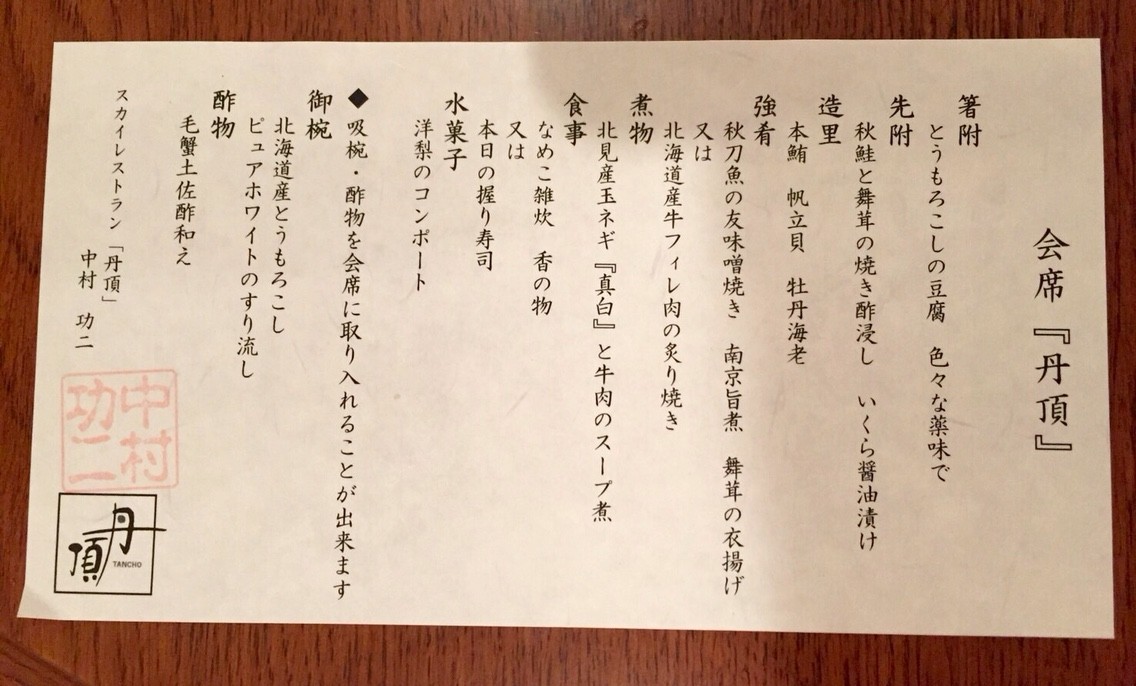 会席『丹頂』
箸附
とうもろこしの豆腐　色々な薬味で
先附
秋鮭と舞茸の焼き酢浸し　いくら醤油漬け
造里
本鮪　帆立貝　牡丹海老
強肴
秋刀魚の友味噌焼き　南京旨煮　舞茸の衣揚げ
又は
北海道産牛フィレ肉の炙り焼き
煮物
北見産玉ネギ『真白』と牛肉のスープ煮
食事
なめこ雑炊　香の物
又は
本日の握り寿司
水菓子
洋梨のコンポート
◆吸椀・酢物を会席に取り入れることが出来ます
御椀
北海道産とうもろこし
ピュアホワイトのすり流し
酢物
毛蟹土佐酢和え
スカイレストラン「丹頂」
中村　功二
中村
功二
丹頂
TANCHO